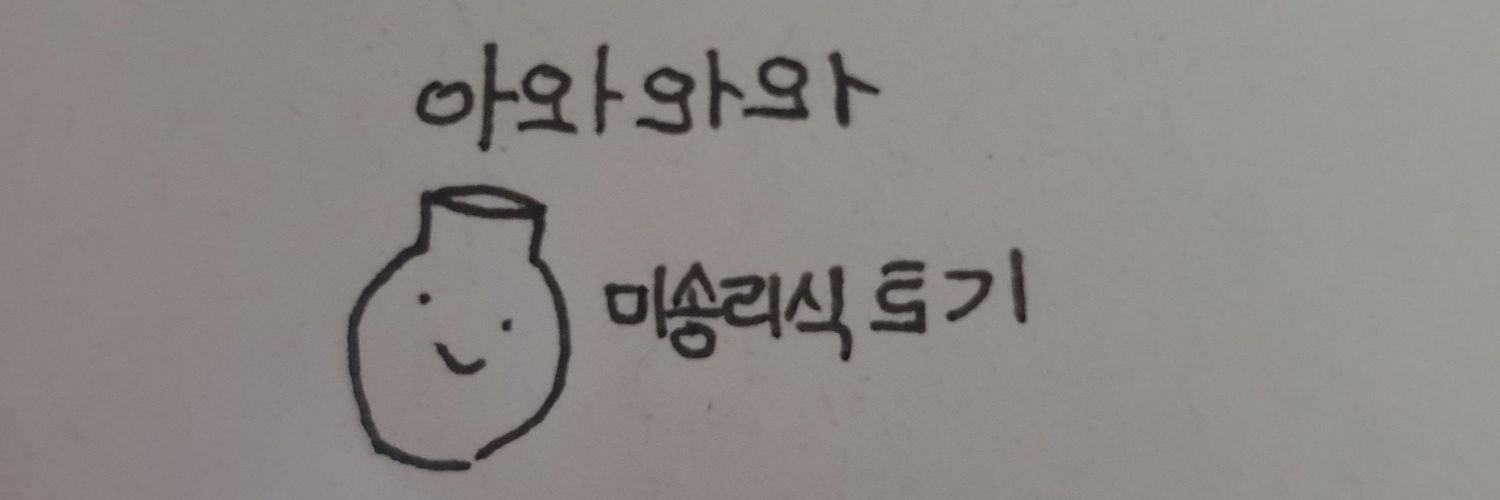 아와와와
미송리식 토기